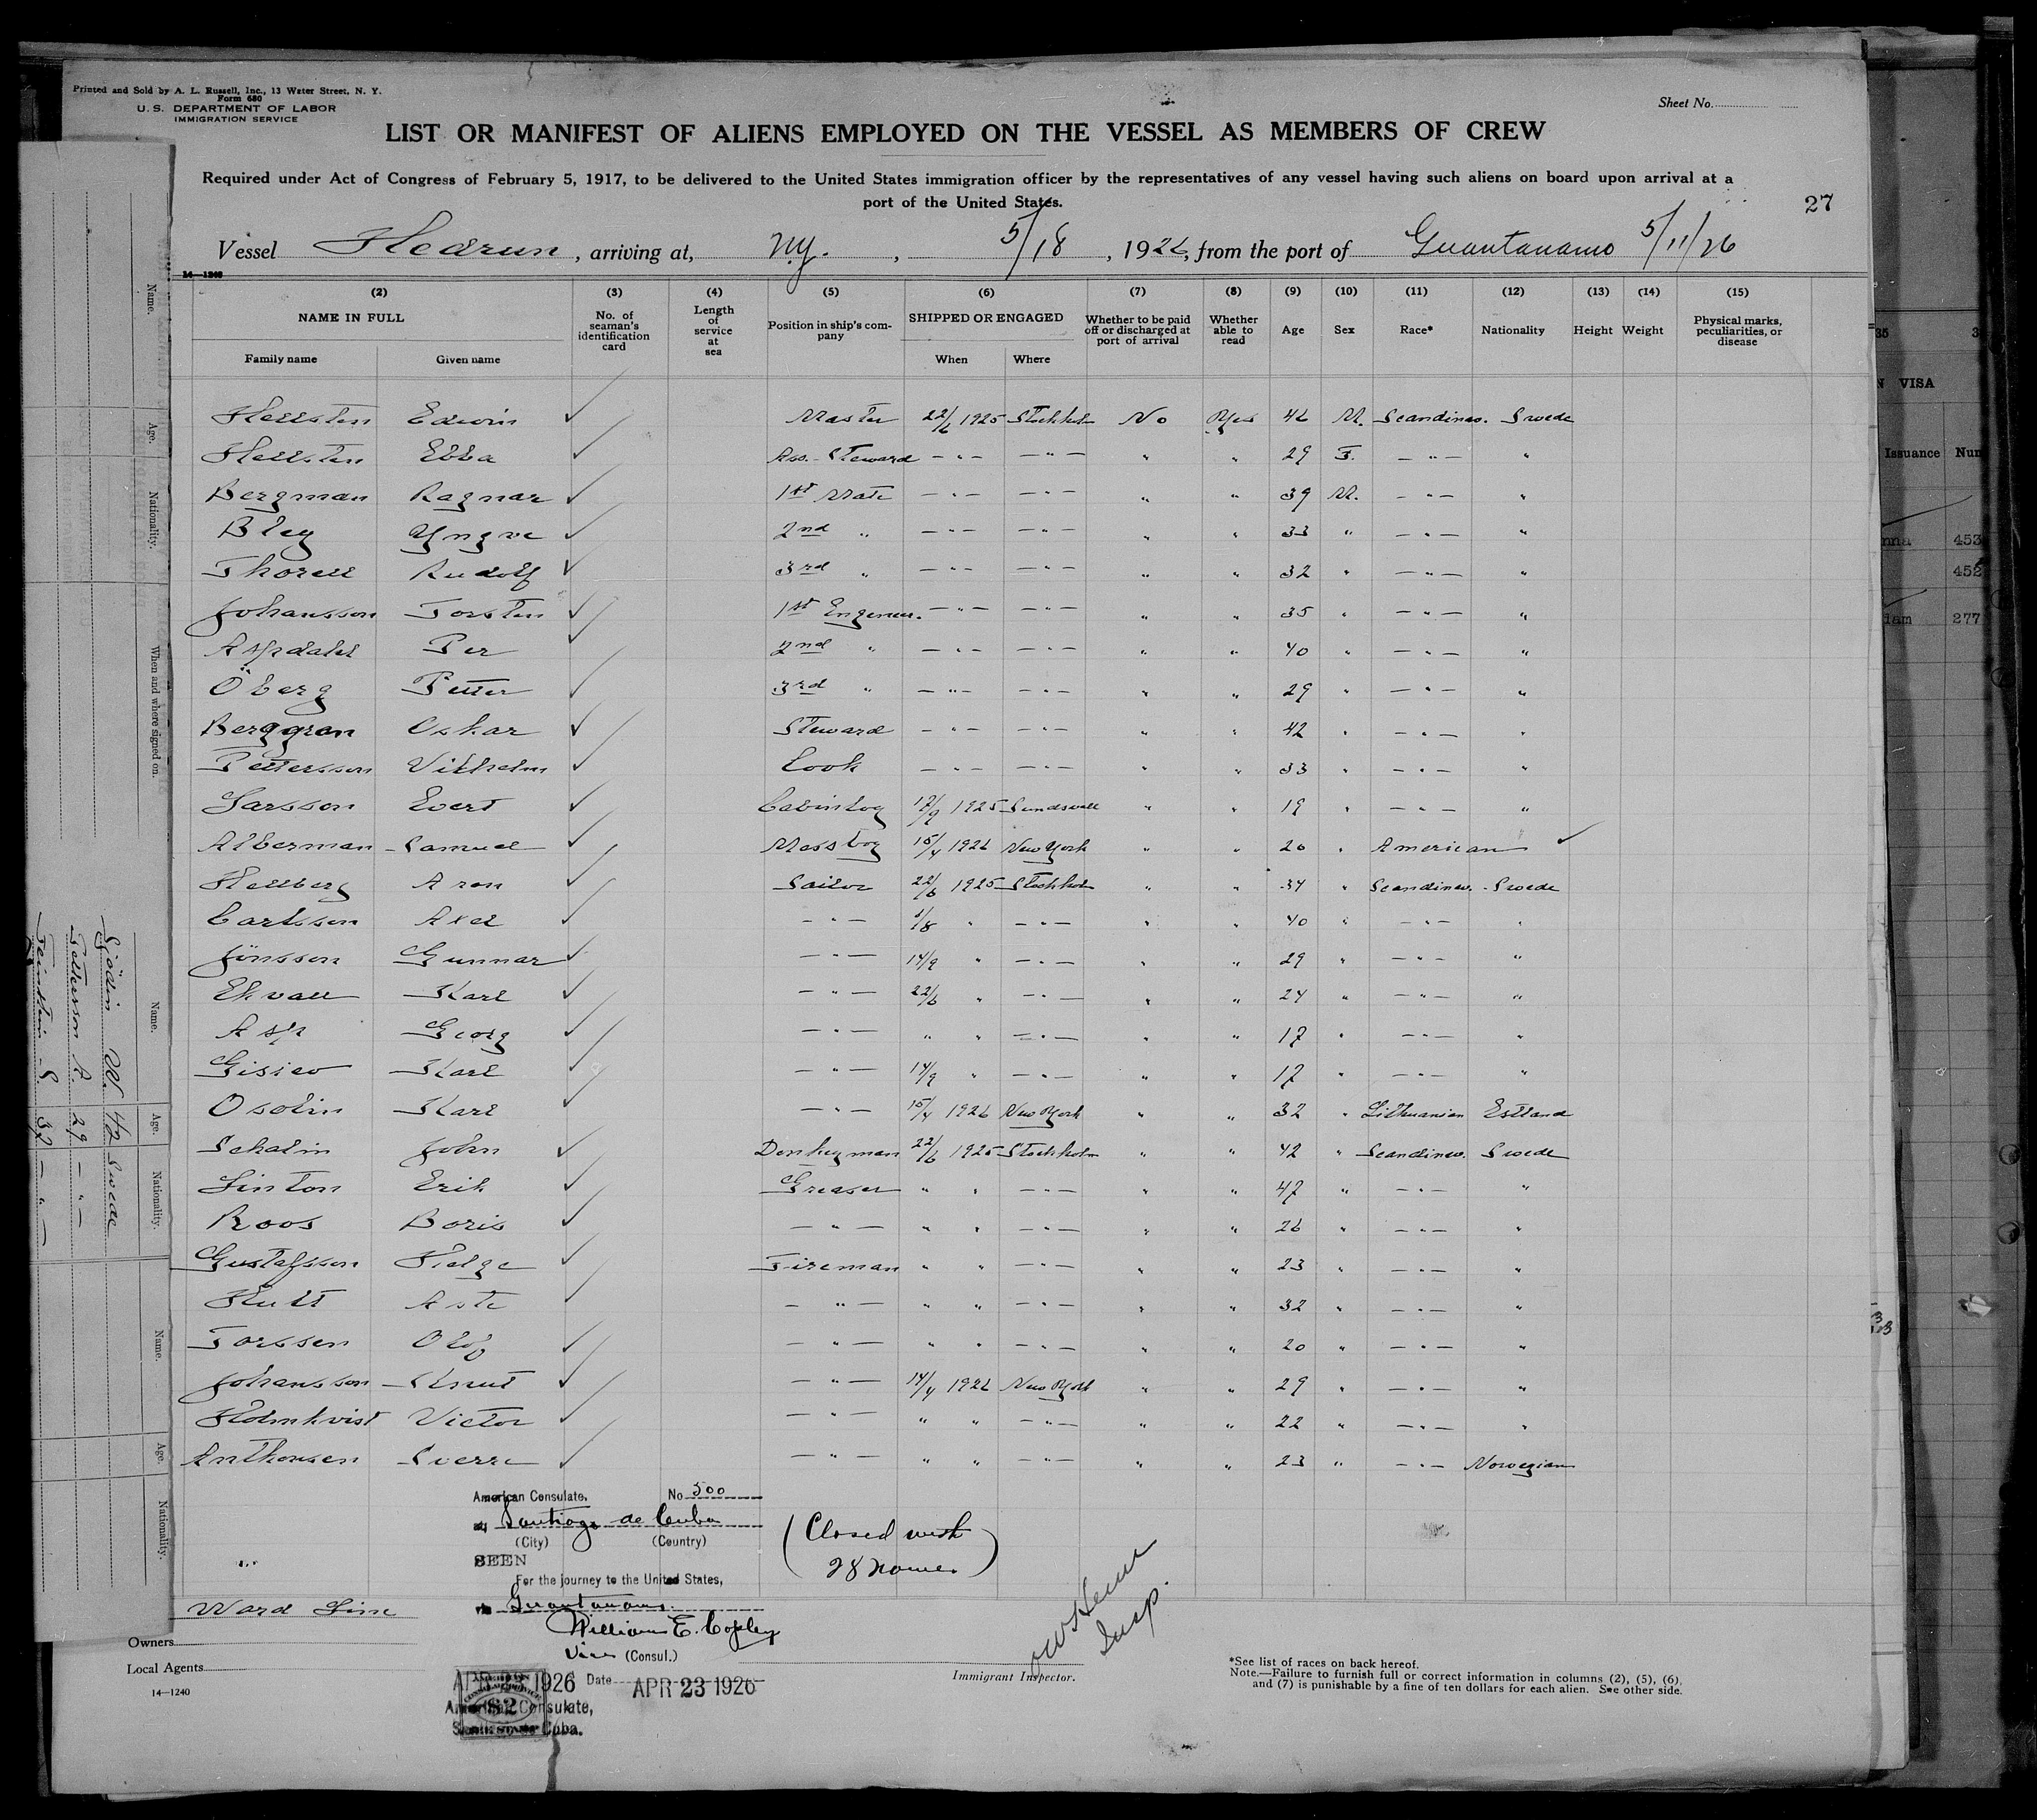 Printed and Sold by A. L. Russell, Inc., 13 Water Street, N. Y.
Form 680
U. S. DEPARTMENT OF LABOR
IMMIGRATION SERVICE
Sheet No.
LIST OR MANIFEST OF ALIENS EMPLOYED ON THE VESSEL AS MEMBERS OF CREW
Required under Act of Congress of February 5, 1917, to be delivered to the United States immigration officer by the representatives of any vessel having such aliens on board upon arrival at a
port of the United States.
27
Vessel Hedrun, arriving at, N.Y., 5/18, 1926, from the port of Guantanamo 5/11/26
14—1240
(2) (3) (4) (5) (6) (7) (8) (9) (10) (11) (12) (13) (14) (15)
NAME IN FULL No. of seaman's identification card Length of service at sea Position in ship's company SHIPPED OR ENGAGED Whether to be paid off or discharged at port of arrival Whether able to read Age Sex Race* Nationality Height Weight Physical marks, peculiarities, or disease
Family name Given name When Where
Hellsten Edwin ✓ Master 22/6 1925 Stockholm No Yes 46 M. Scandinav. Swede
Hellsten Ebba ✓ Ass. Steward — " — — " — " " 29 F. — " — "
Bergman Ragnar ✓ 1st Mate — " — — " — " " 39 M. — " — "
Bley Yngve ✓ 2nd " — " — — " — " " 33 " — " — "
Thorell Rudolf ✓ 3rd " — " — — " — " " 32 " — " — "
Johansson Torsten ✓ 1st Engeneer. — " — — " — " " 35 " — " — "
Aspdahl Per ✓ 2nd " — " — — " — " " 40 " — " — "
Öberg Petter ✓ 3rd " — " — — " — " " 29 " — " — "
Berggren Oskar ✓ Steward — " — — " — " " 42 " — " — "
Pettersson Vilhelm ✓ Cook — " — — " — " " 33 " — " — "
Larsson Evert ✓ Cabinboy 17/9 1925 Sundsvall " " 19 " — " — "
Alberman Samuel ✓ Messboy 15/4 1926 New York " " 20 " American ✓
Hellberg Aron ✓ Sailor 22/6 1925 Stockholm " " 34 " Scandinav. Swede
Carlsson Axel ✓ — " — 1/8 " — " — " " 40 " — " — "
Jönsson Gunnar ✓ — " — 14/9 " — " — " " 29 " — " — "
Ekvall Karl ✓ — " — 22/6 " — " — " " 24 " — " — "
Asp Georg ✓ — " — " " — " — " " 17 " — " — "
Gisiev Karl ✓ — " — 14/9 " — " — " " 17 " — " — "
Osolin Karl ✓ — " — 15/4 1926 New York " " 32 " Lithuanian Estland
Schalin John ✓ Donkeyman 22/6 1925 Stockholm " " 42 " Scandinav. Swede
Linton Erik ✓ Greaser " " — " — " " 47 " — " — "
Roos Boris ✓ — " — " " — " — " " 26 " — " — "
Gustafsson Helge ✓ Fireman " " — " — " " 23 " — " — "
Hult Aste ✓ — " — " " — " — " " 32 " — " — "
Torssen Olof ✓ — " — " " — " — " " 20 " — " — "
Johansson Knut ✓ — " — 14/4 1926 New York " " 29 " — " — "
Holmkvist Victor ✓ — " — " " — " — " " 22 " — " — "
Anthonsen Sverre ✓ — " — " " — " — " " 23 " — " — Norwegian
American Consulate. No 500
at Santiago de Cuba
(City) (Country)
SEEN
For the journey to the United States,
via Guantanamo.
William E. Copley
Vice (Consul.)
Date APR 23 1926
American Consulate,
Cuba.
82
(Closed with
28 names)
Insp.
Immigrant Inspector.
Ward Line
Owners
Local Agents
14—1240
*See list of races on back hereof.
Note.—Failure to furnish full or correct information in columns (2), (5), (6),
and (7) is punishable by a fine of ten dollars for each alien. See other side.
Name. Age. Nationality. When and where signed on.
Name. Age. Nationality.
Sjödin W. 42 Swede
Petterson A. 29 — " —
Feinstein S. 37 — " —
Name. Age. Nationality.
35 3
N VISA
Issuance Num
nna 453
452
iam 277